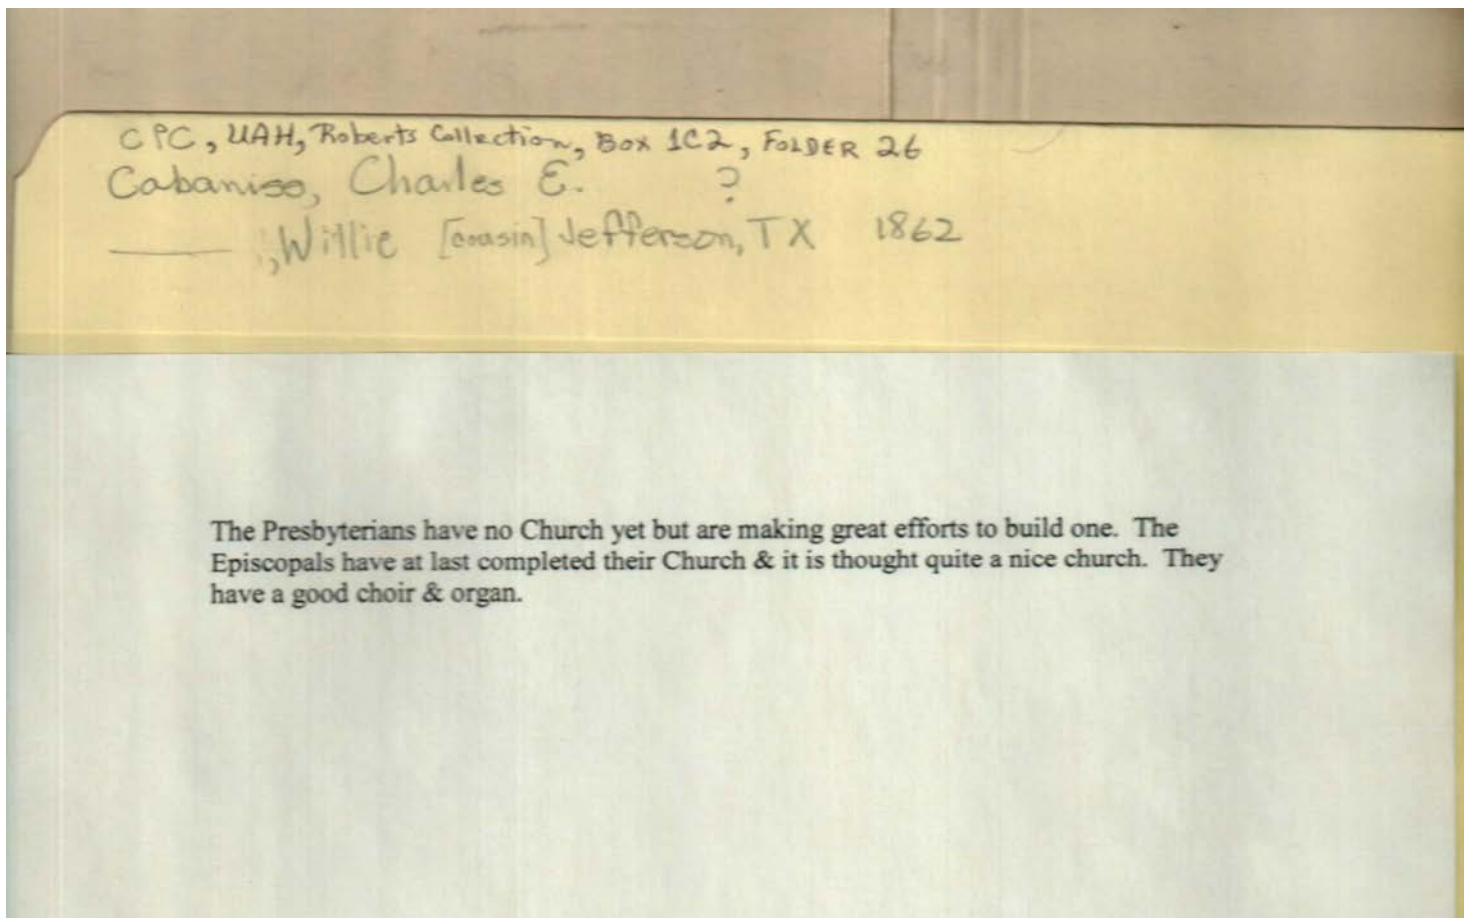 CPC, UAH, Roberts Collection, Box 1C2, FOLDER 26
Cabaniss, Charles E. ?
——— , Willie [cousin] Jefferson, TX 1862
The Presbyterians have no Church yet but are making great efforts to build one. The
Episcopals have at last completed their Church & it is thought quite a nice church. They
have a good choir & organ.